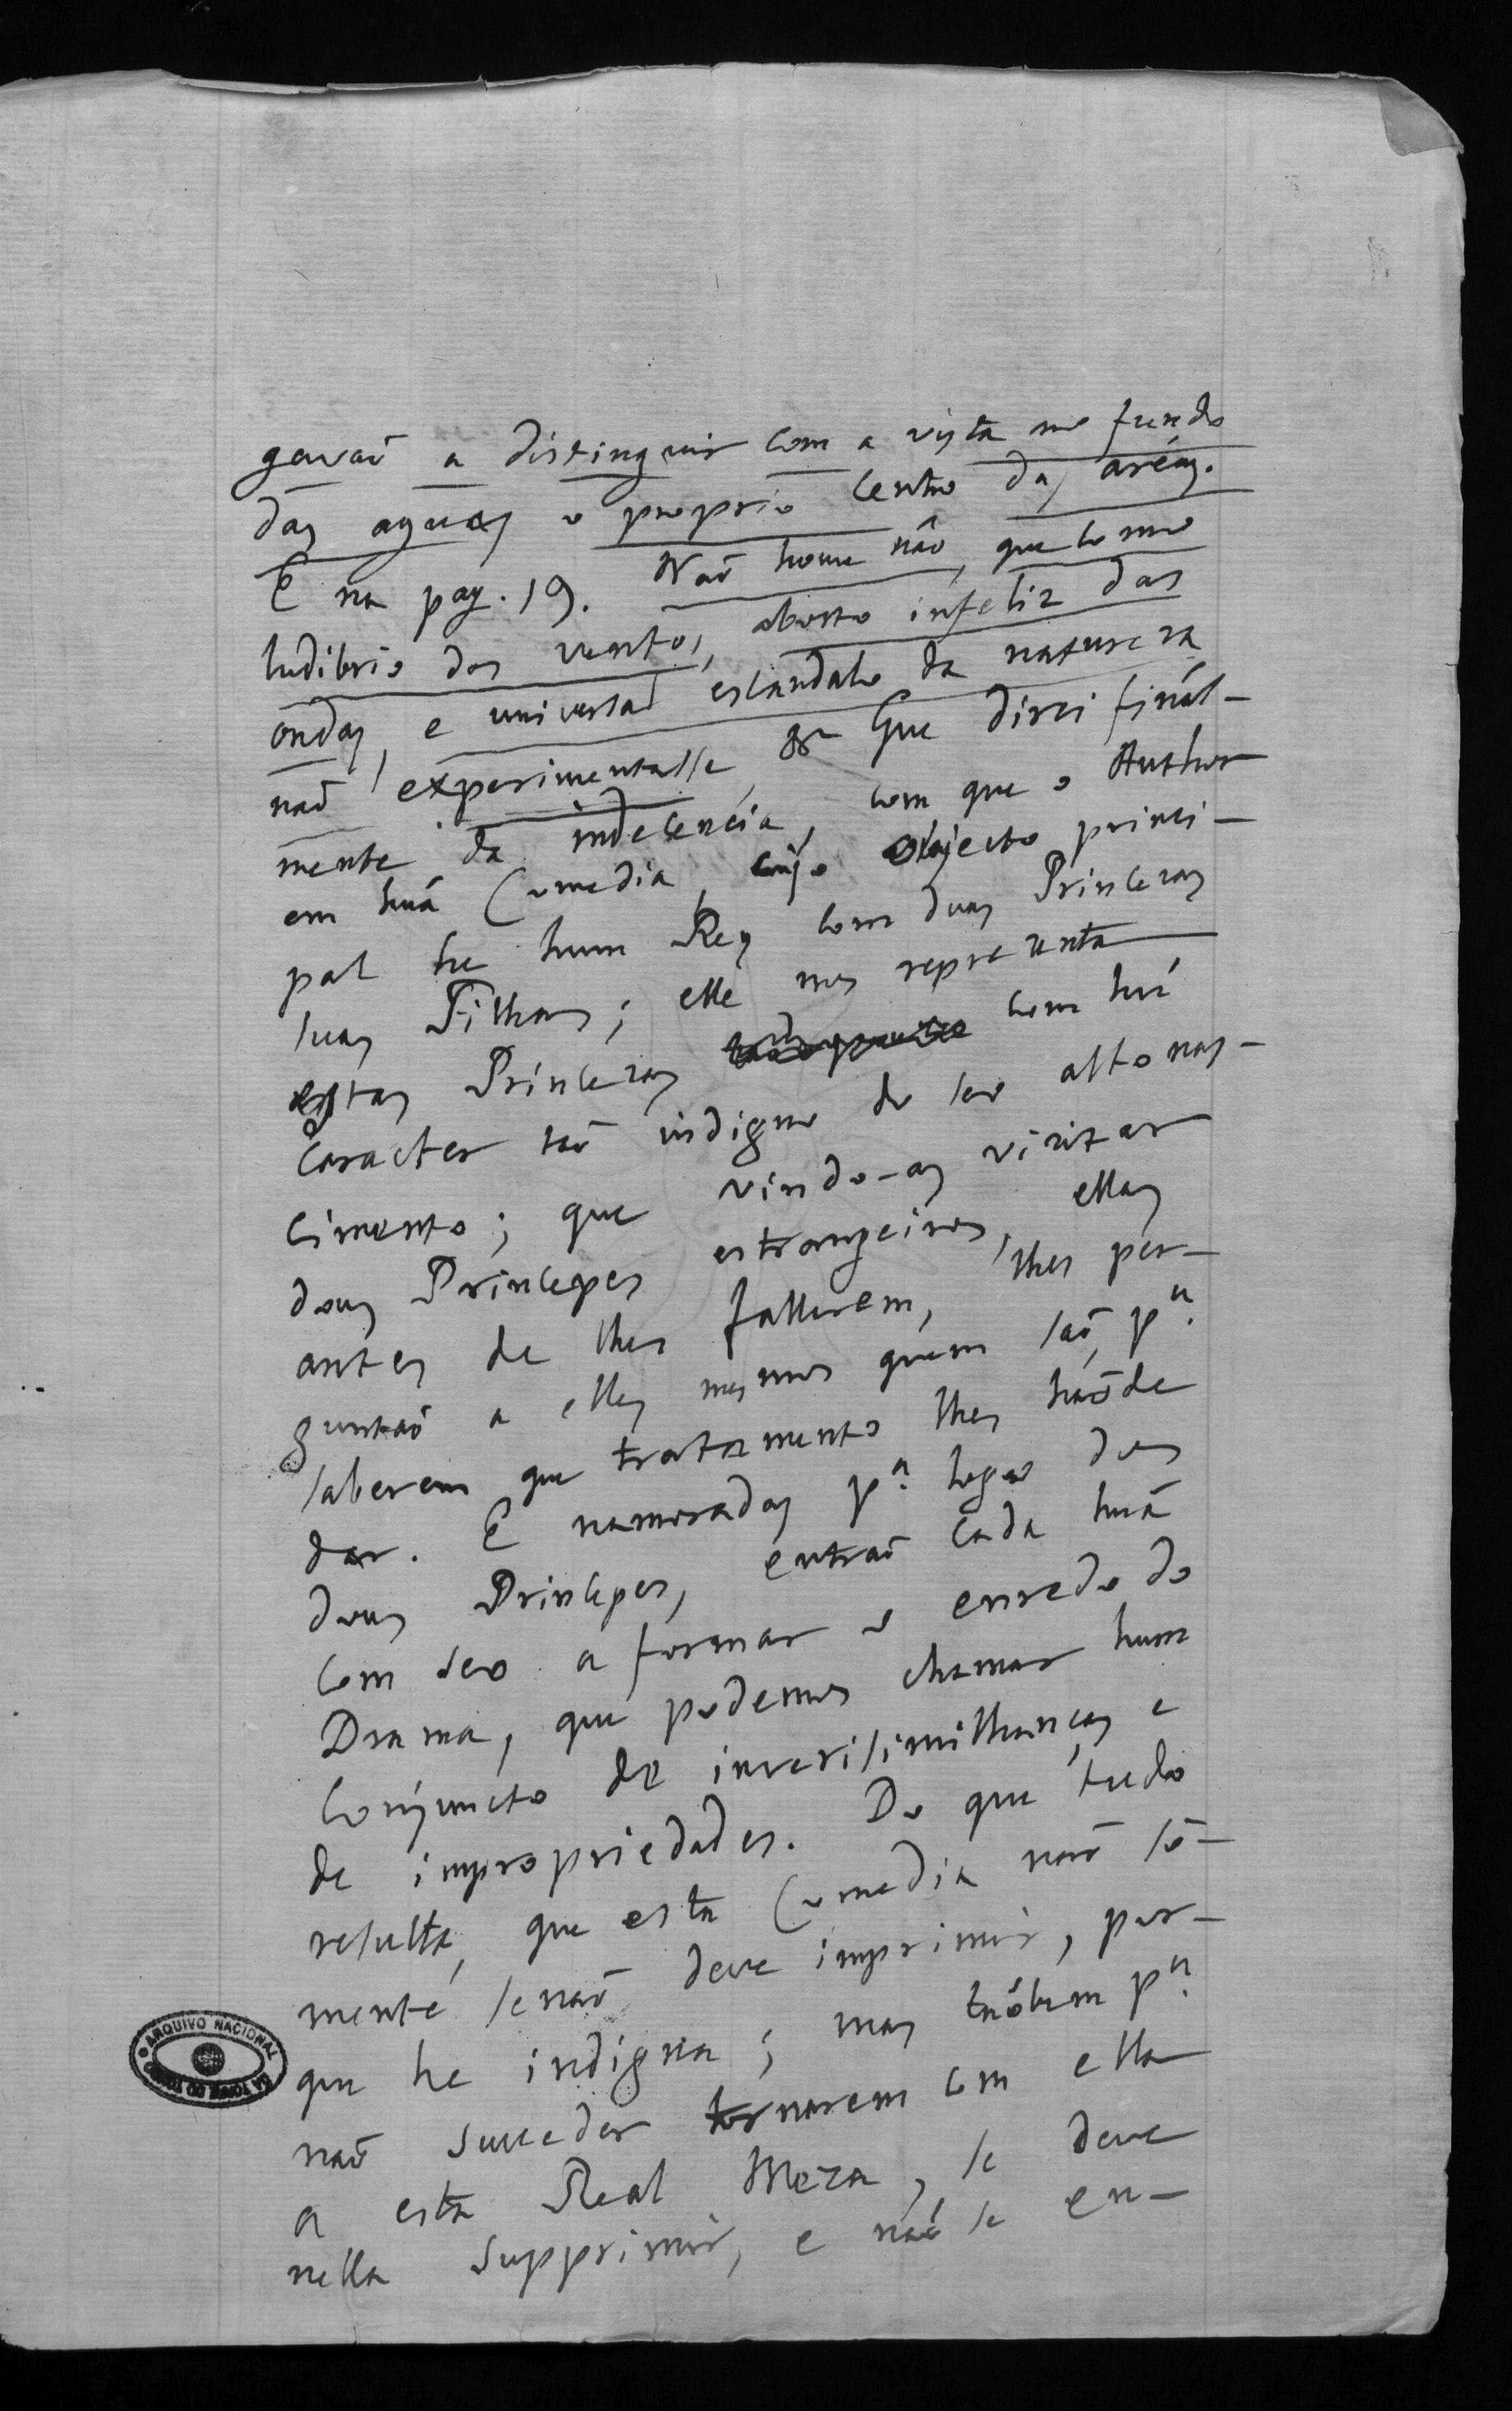 gavaõ a distinguir com a vista no fundo
das aguas o proprio centro das arêas.
E na pag. 19. Naõ houve náo, que como
ludibrio dos ventos, aborto infeliz das
ondas, e universal escandalo da natureza
naõ experimentasse, &ª Que direi final-
mente da indecencia, com que o Author
em huã Comedia, cujo Objecto princi-
pal he hum Rey com duas Princezas
suas Filhas; elle nos representa
estas Princezas com hũ
Caracter taõ indigno do seo alto nas-
cimento; que vindo-as vizitar
dous Princepes estrangeiros, ellas
antes de lhes fallarem, lhes per-
guntaõ a elles mesmos quem saõ, pª
saberem que tratamento lhes haõde
dar. E namoradas pª logo dos
dous Princepes, entraõ cada huã
com seo a formar o enredo do
Drama, que podemos chamar hum
Conjuncto de inverisimilhanças e
de impropriedades. Do que tudo
resulta, que esta Comedia naõ só-
mente senaõ deve imprimir, por-
que he indigna; mas tãobem pª
naõ succeder tornarem com ella
a esta Real Meza, se deve
nella supprimir, e naõ se en-
ARQUIVO NACIONAL
DA TORRE DO TOMBO